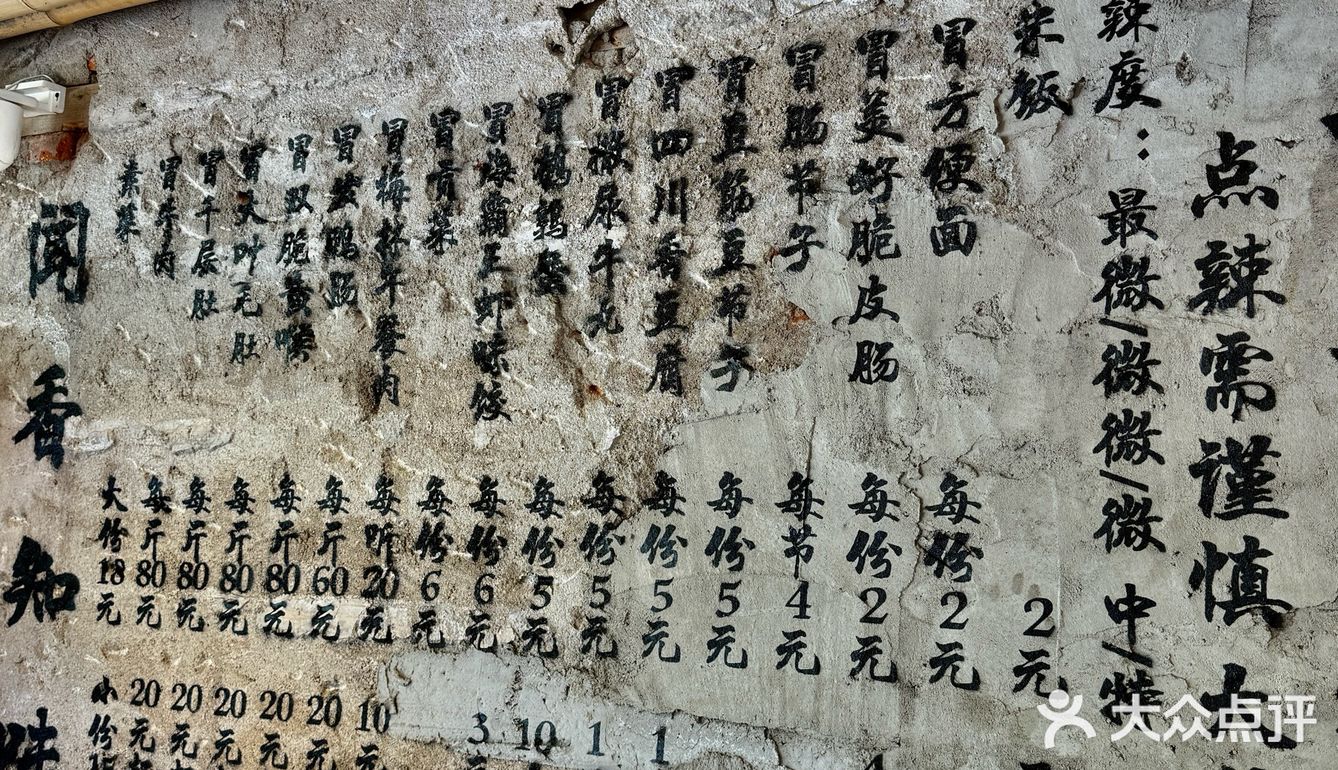 点辣需谨慎
辣度：最微/微微/微 中/特
米饭 2元
冒方便面 每份2元
冒美好脆皮肠 每份2元
冒肠节子 每节4元
冒豆筋豆节子 每份5元
冒四川香豆腐 每份5元 1
冒撒尿牛丸 每份5元 1
冒鹌鹑蛋 每份5元 10
冒海霸王虾味饺 每份6元 3
冒贡菜 每份6元
冒梅林午餐肉 每听20元 10
冒鹅肠 每斤60元 20元
冒双脆黄喉 每斤80元 20元
冒大叶毛肚 每斤80元 20元
冒千层肚 每斤80元 20元
冒牛肉 每斤80元 20元
素菜 大份18元 小份
闻香知味
大众点评